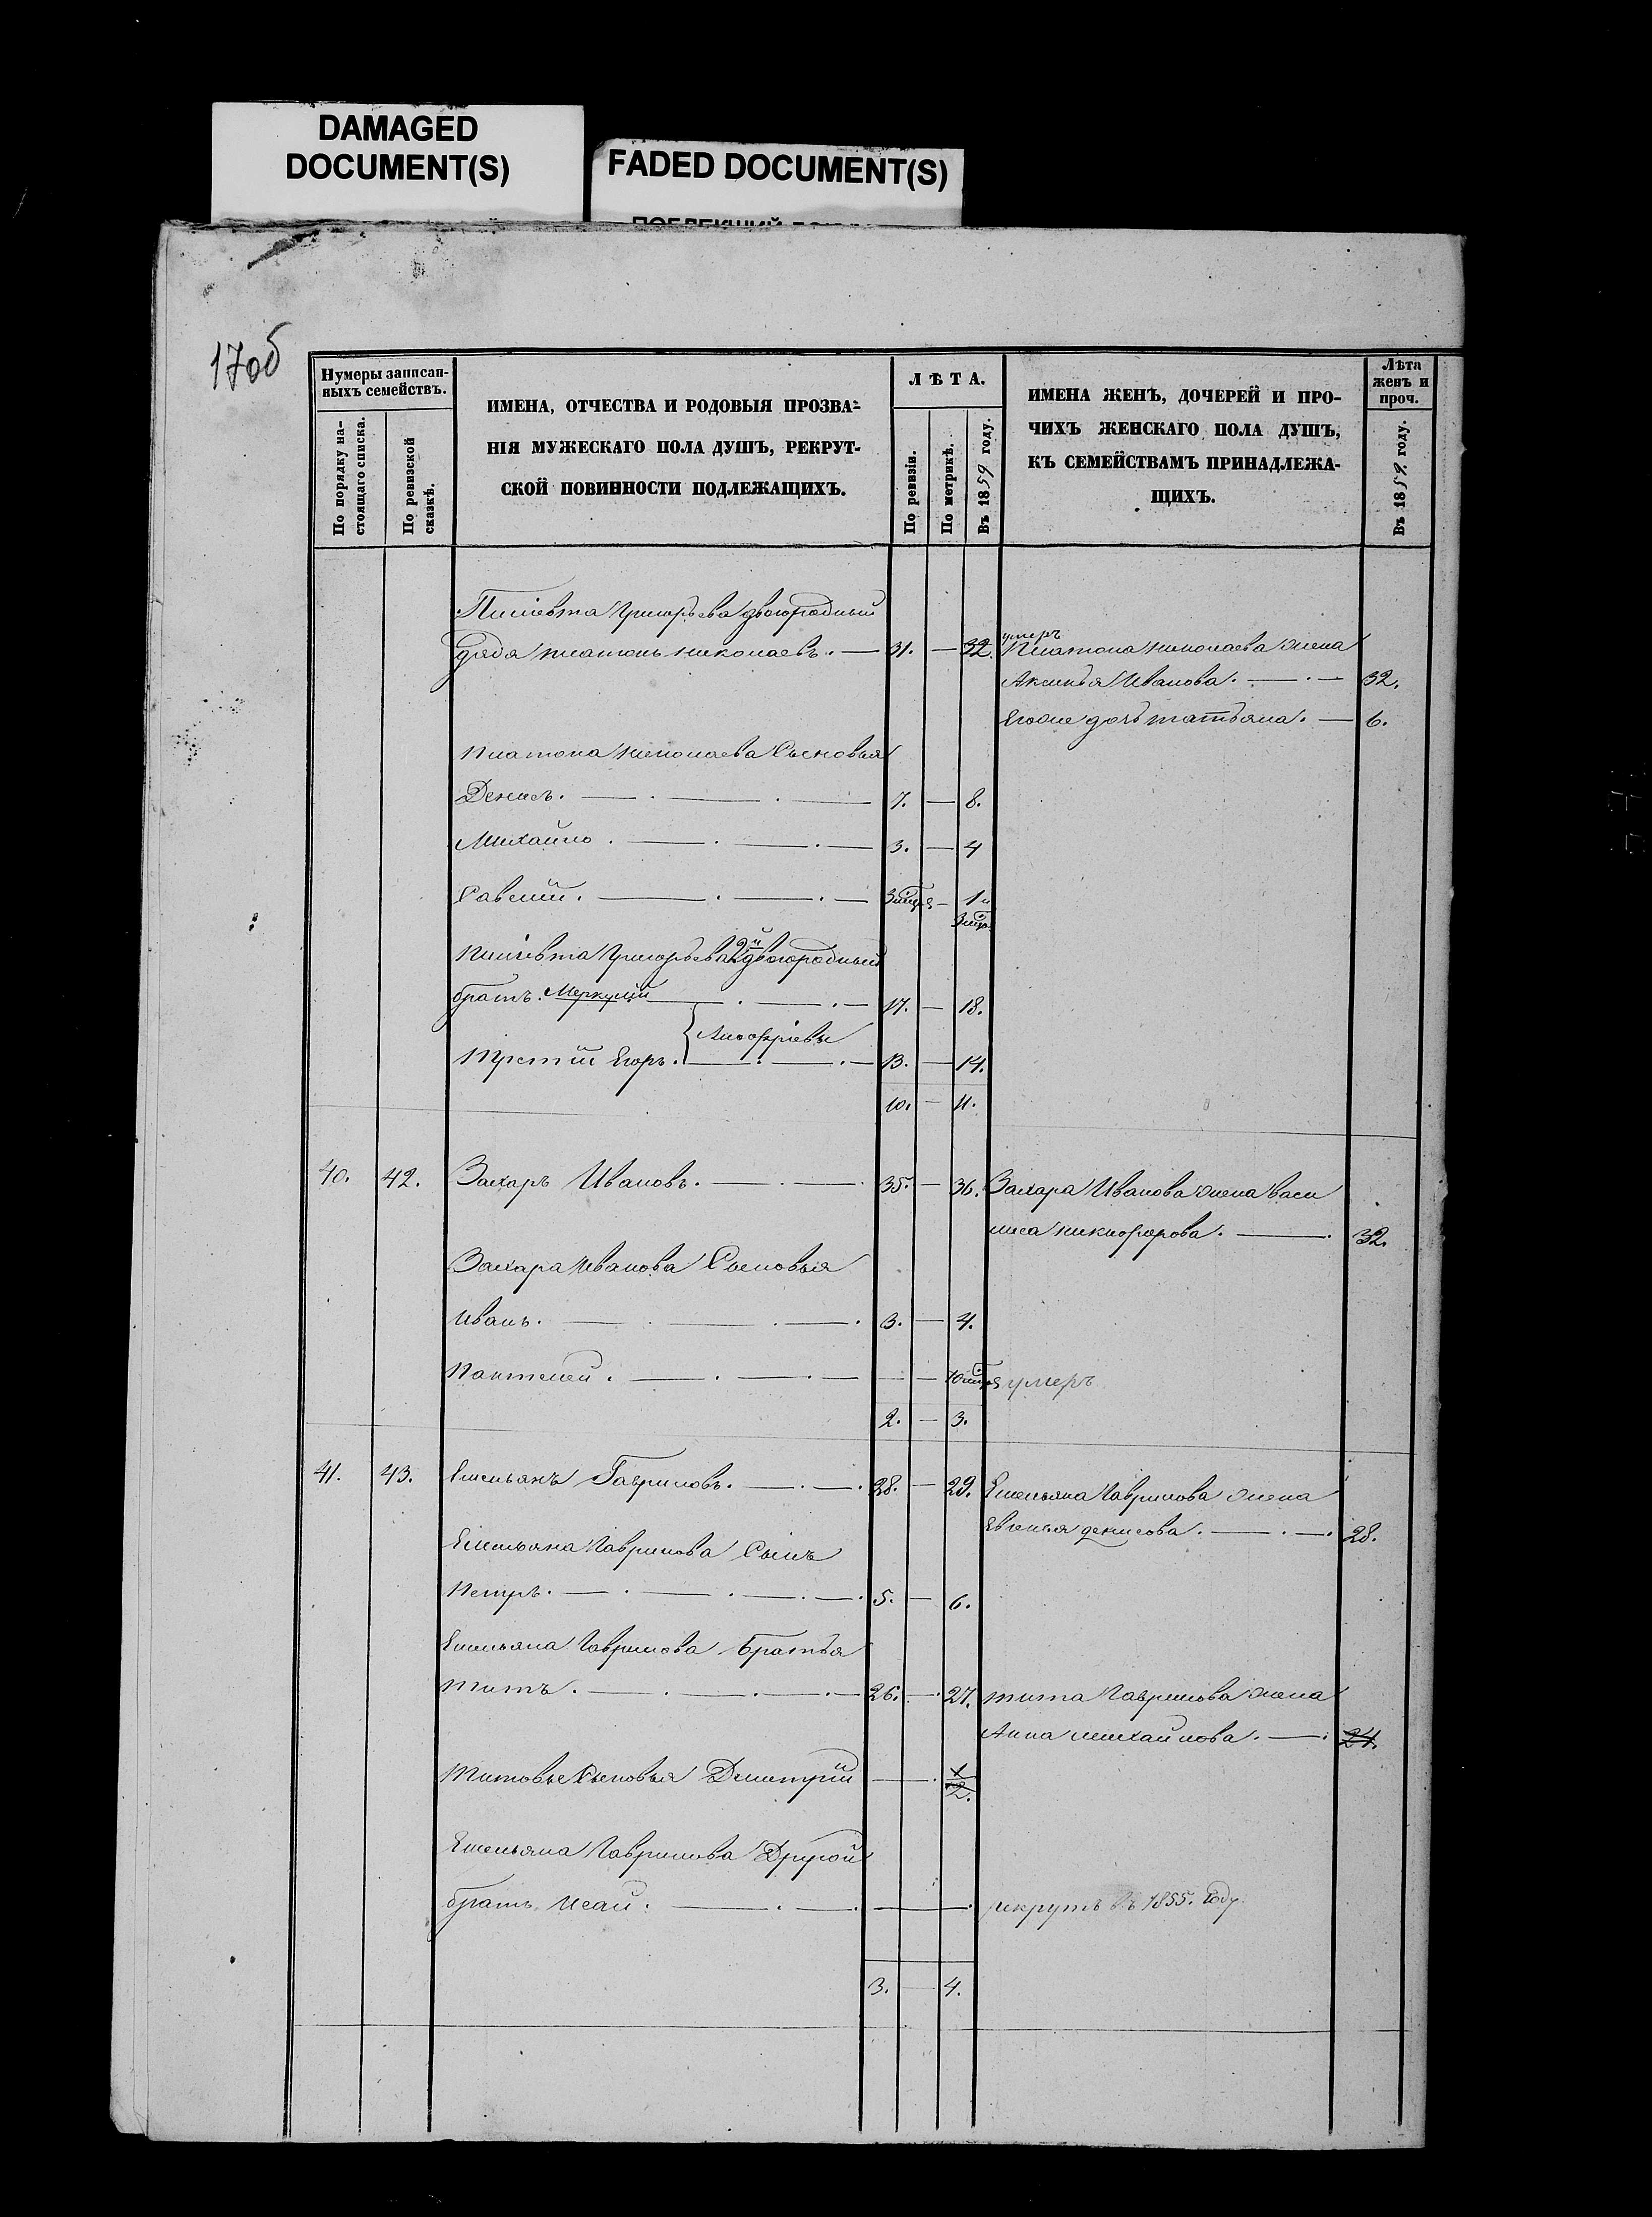 DAMAGED
DOCUMENT(S)
FADED DOCUMENT(S)
17об
Нумеры записан-
ныхъ семействъ.
По порядку на-
стоящаго списка.
По ревизской
сказкѣ.
ИМЕНА, ОТЧЕСТВА И РОДОВЫЯ ПРОЗВА-
НІЯ МУЖЕСКАГО ПОЛА ДУШЪ, РЕКРУТ-
СКОЙ ПОВИННОСТИ ПОДЛЕЖАЩИХЪ.
ЛѢТА.
По ревизіи.
По метрикѣ.
Въ 1859 году.
ИМЕНА ЖЕНЪ, ДОЧЕРЕЙ И ПРО-
ЧИХЪ ЖЕНСКАГО ПОЛА ДУШЪ,
КЪ СЕМЕЙСТВАМЪ ПРИНАДЛЕЖА-
ЩИХЪ.
Лѣта
женъ и
проч.
Въ 1859 году.
Григорьева двоюродный
умеръ
дядя платонъ николаевъ. — 31. — 32. Платона николаева жена
Аксинья Иванова. — 32.
Егоже дочь татьяна. — 6.
платона николаева Сыновья
Денисъ. — 7. — 8.
Михайло. — 3. — 4
Савелий. — 1 и
Григорьева 2й двоюродный
братъ. Меркулий — 17. — 18.
Анофріевы
третий Егоръ. — 13. — 14.
10. — 11.
40. 42. Захаръ Ивановъ. — 35. — 36. Захара Иванова жена васи
лиса никифорова. — 32.
Захара Иванова Сыновья
иванъ. — 3. — 4.
Пантелей. — умеръ
2. — 3.
41. 43. Емельянъ Гавриловъ. — 28. — 29. Емельяна Гаврилова жена
Евгенья денисова. — 28.
Емельяна Гаврилова Сынъ
петръ. — 5. — 6.
Емельяна Гаврилова Братья
титъ. — 26. — 27. тита Гаврилова жена
Анна михайлова. — 24.
Титовы Сыновья Дмитрий — 1
2.
Емельяна Гаврилова Другой
братъ исай. — рекрутъ въ 1855. году.
3. — 4.